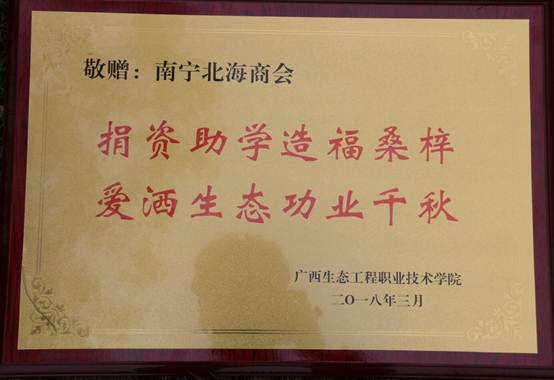 敬赠：南宁北海商会
捐资助学造福桑梓
爱洒生态功业千秋
广西生态工程职业技术学院
二〇一八年三月